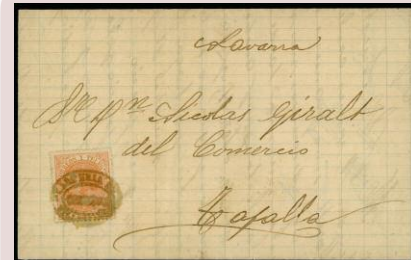 Navarra
Sr Dn Nicolas Giralt
del Comercio
Tafalla